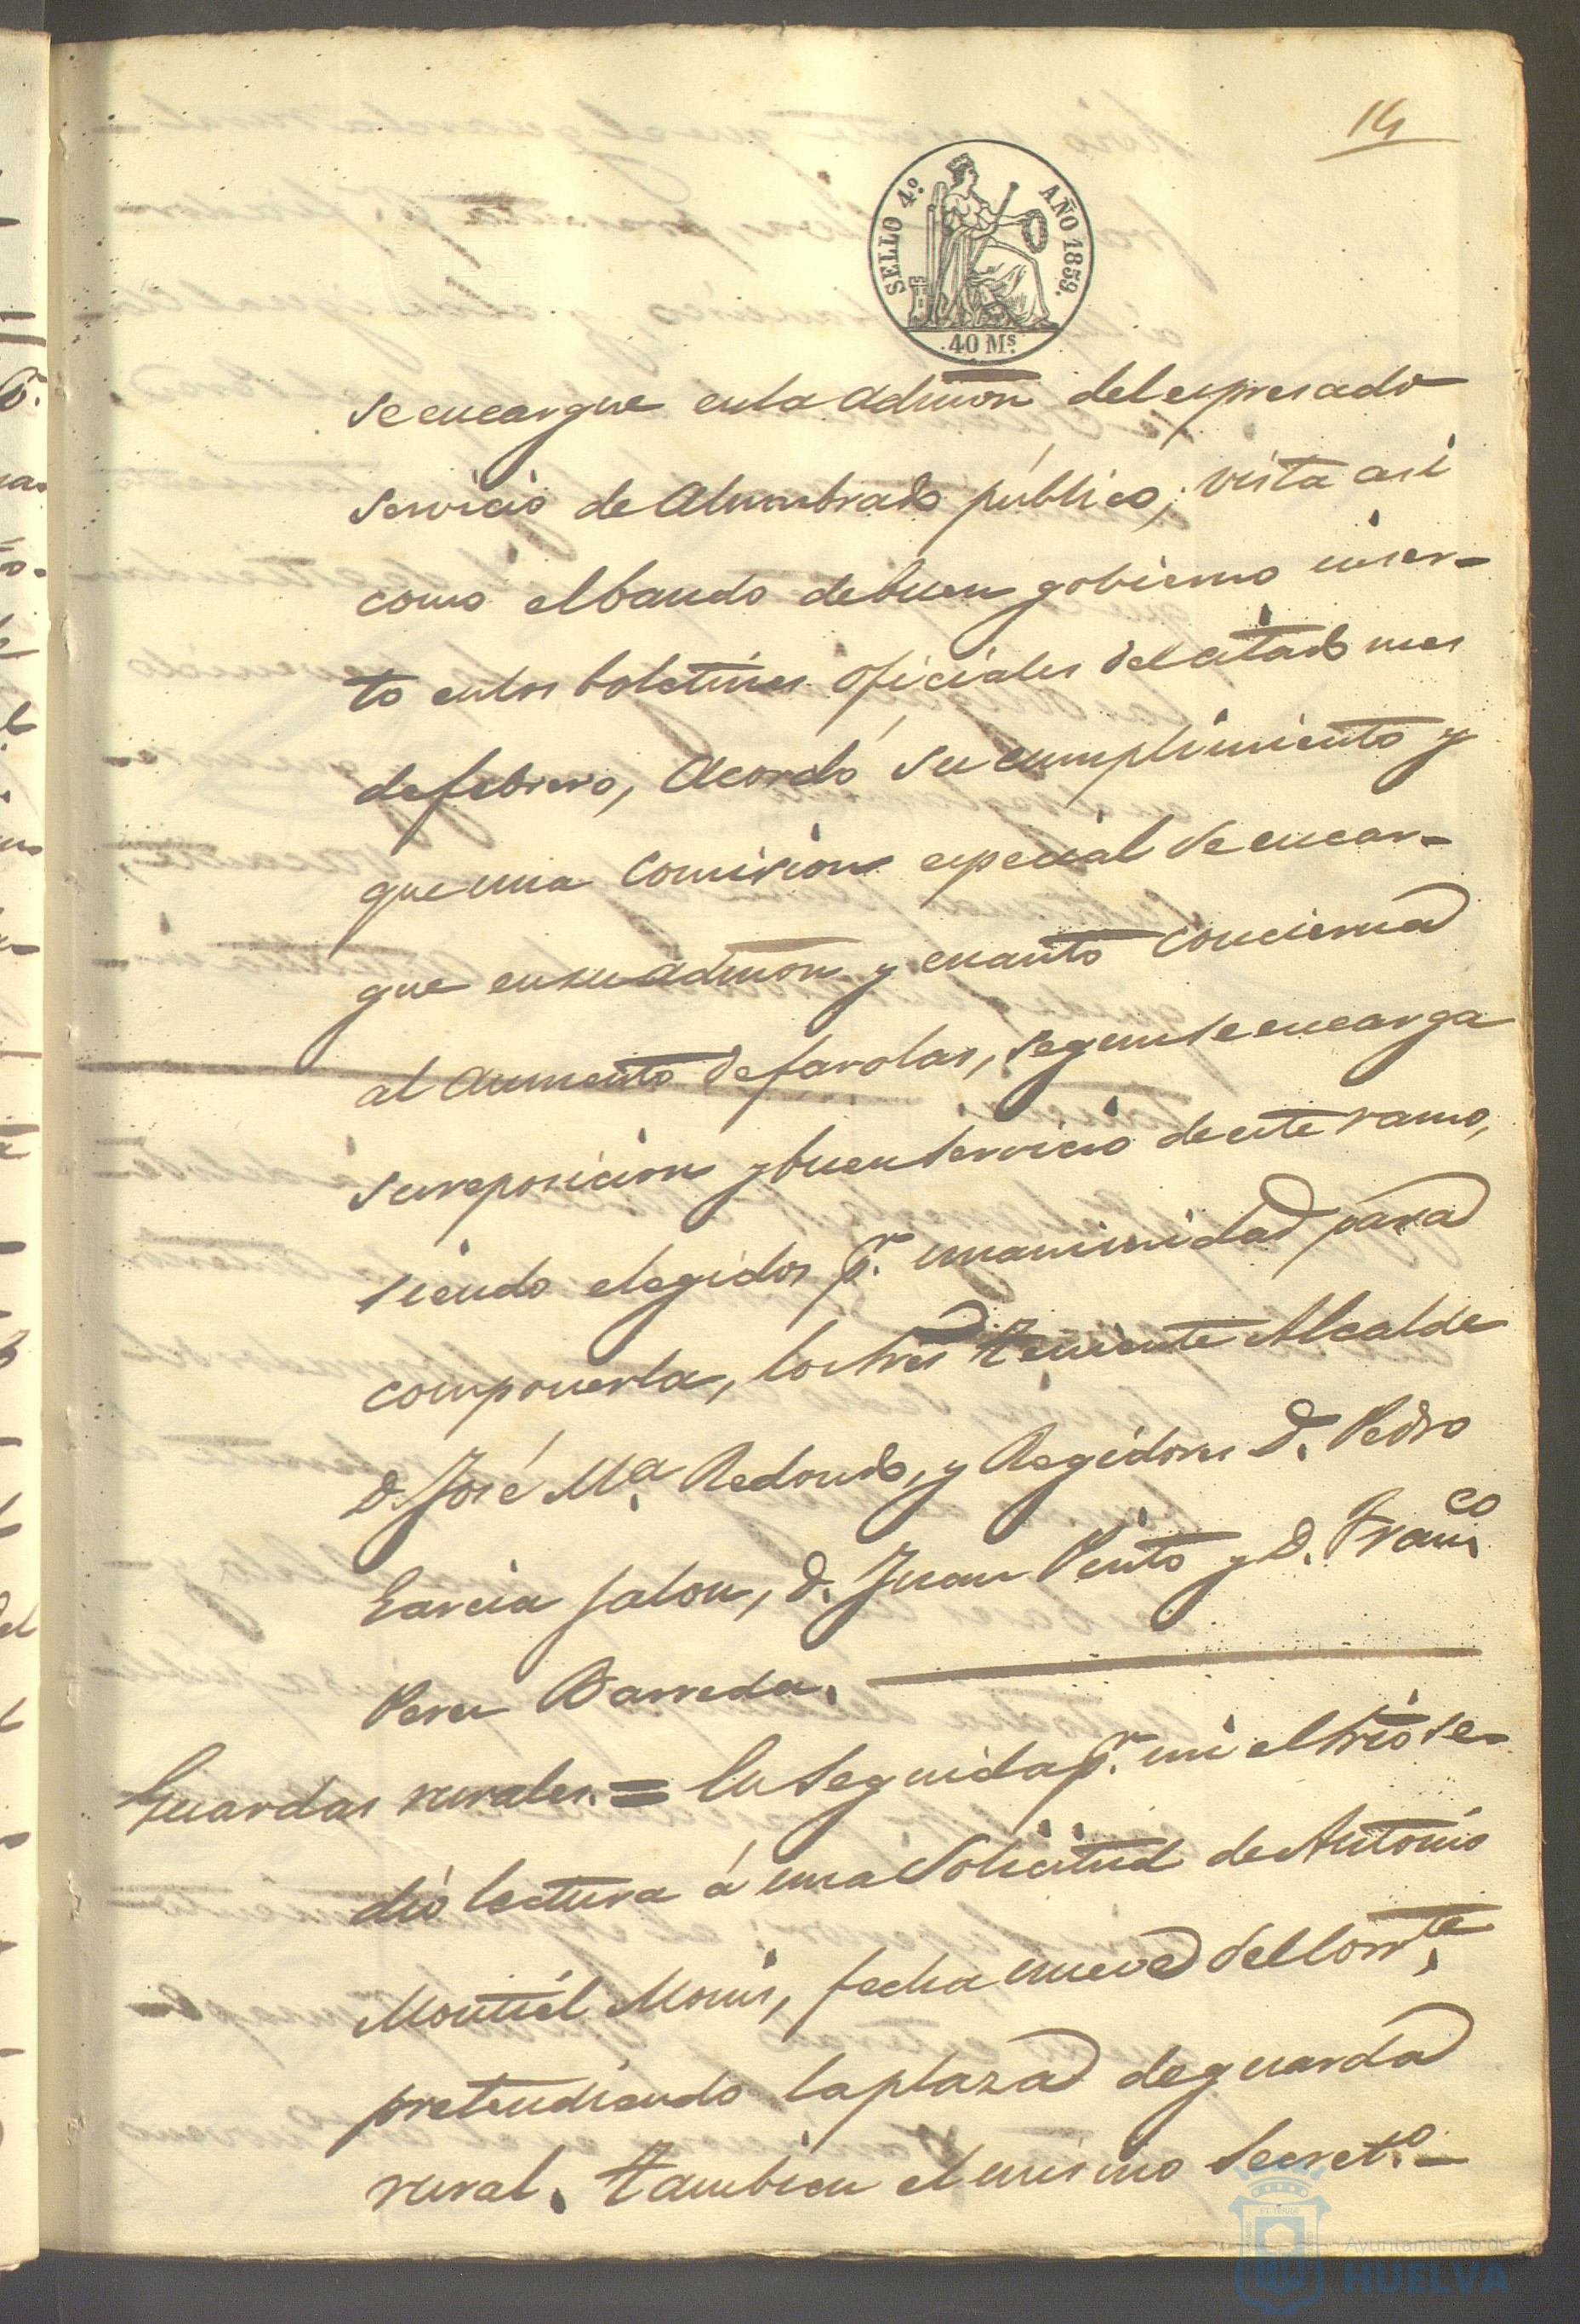 14
SELLO 4º. AÑO 1859.
40 Ms.
se encargue en la admon del espresado
servicio de Alumbrado público; vista asi
como el bando de buen gobierno inser-
to en los boletines oficiales del citado mes
de febrero, acordó su cumplimiento y
que una comision especial se encar-
gue en su admon y cuanto concierna
al aumento de farolas, segun se encarga
su reposicion y buen servicio de este ramo,
siendo elegidos pr. unanimidad para
componerla, los Sres Teniente Alcalde
D. José Mª. Redondo, y Regidores D. Pedro
Garcia Jalon, D. Juan Pinto y D. Franco
Perez Barreda.
Guardas rurales. = En seguida pr. mi el Srio se
dió lectura á una Solicitud de Antonio
Montiel Monis, fecha nueve del corrte.
pretendiendo la plaza de guarda
rural. Tambien el mismo Secreto.
Ayuntamiento de
HUELVA